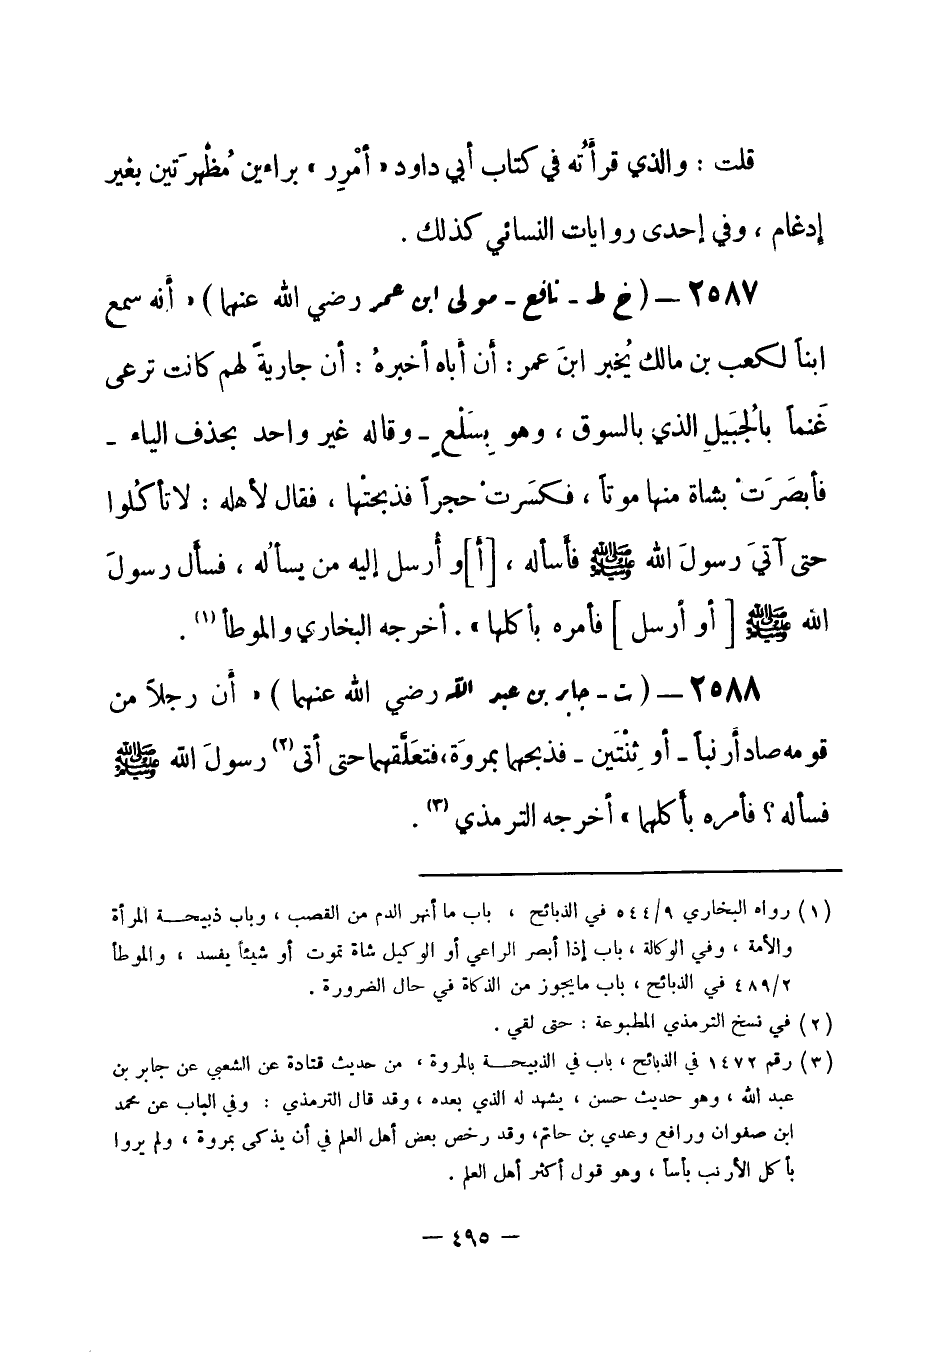 قلت : والذي قرأْتُه في كتاب أبي داود « أمْرِر » براءين مُظْهرَتين بغير
إدغام ، وفي إحدى روايات النسائي كذلك .
٢٥٨٧ – ( خ ط - نافع - مولى ابن عمر رضي الله عنهما ) « أنه سمع
ابناً لكعب بن مالك يُخبر ابنَ عمر : أن أباه أخبرهُ : أن جاريةً لهم كانت ترعى
غَنماً بالجُبَيلِ الذي بالسوق ، وهو بِسَلْعٍ - وقاله غير واحد بحذف الياء -
فأبصَرَتْ بشاة منها موتاً ، فكسَرتْ حجراً فذبحتْها ، فقال لأهله : لا تأكُلوا
حتى آتيَ رسولَ الله ﷺ فأسأله ، [أ]و أُرسل إليه من يسألُه ، فسأل رسولَ
الله ﷺ [ أو أرسل ] فأمره بأكلها » . أخرجه البخاري والموطأ (١) .
٢٥٨٨ – ( ت - جابر بن عبد الله رضي الله عنهما ) « أن رجلاً من
قومه صاد أرنباً - أو ثِنْتَين - فذبحهما بمروَة ، فتعَلَّقهما حتى أتى (٢) رسولَ الله ﷺ
فسأله ؟ فأمره بأكلهما » أخرجه الترمذي (٣) .
(١) رواه البخاري ٥٤٤/٩ في الذبائح ، باب ما أنهر الدم من القصب ، وباب ذبيحة المرأة
والأمة ، وفي الوكالة ، باب إذا أبصر الراعي أو الوكيل شاة تموت أو شيئاً يفسد ، والموطأ
٤٨٩/٢ في الذبائح ، باب ما يجوز من الذكاة في حال الضرورة .
(٢) في نسخ الترمذي المطبوعة : حتى لقي .
(٣) رقم ١٤٧٢ في الذبائح ، باب في الذبيحة بالمروة ، من حديث قتادة عن الشعبي عن جابر بن
عبد الله ، وهو حديث حسن ، يشهد له الذي بعده ، وقد قال الترمذي : وفي الباب عن محمد
ابن صفوان ورافع وعدي بن حاتم ، وقد رخص بعض أهل العلم في أن يذكى بمروة ، ولم يروا
بأكل الأرنب بأساً ، وهو قول أكثر أهل العلم .
– ٤٩٥ –